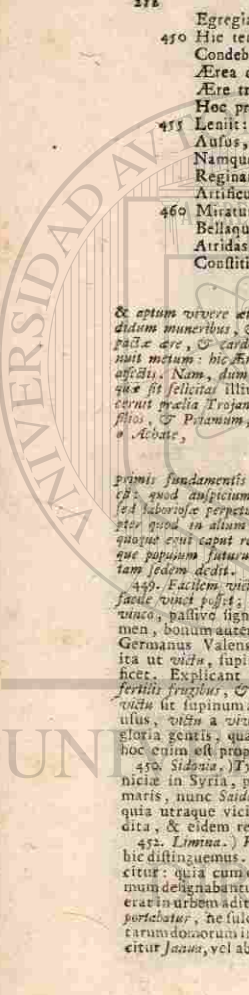 252
Egregia
450 Hic te
Condeb
Ærea
Ære tr
Hoc pr
455 Leniit:
Ausus,
Namqu
Regina
Artificu
460 Miratu
Bellaqu
Atridas
Constiti
& aptum vivere
didum muneribus,
pactæ ære, & card
nuit metum: hic Æn
affectis. Nam, dum
quæ sit felicitas illi
cernit prælia Trojan
filios, & Priamum,
o Achate,
primis fundamentis
est: quod auspicium
sed laboriosæ perpetu
pter quod in alium
quoque equi caput re
que populum futuru
tam sedem dedit.
449. Facilem vict
facile vinci posset;
vinco, passivo sign
men, bonum auten
Germanus Valens
ita ut victu, supi
ficet. Explicant
fertilis frugibus, &
victu sit supinum
usus, victu a viv
gloria gentis, qua
hoc enim est prop
450. Sidonia.) Ty
niciæ in Syria, p
maris, nunc Said
quia utraque vici
dita, & eidem re
452. Limina.)
hic distinguemus.
citur: quia cum
mum designabantu
erat in urbem adit
portabatur, ne sulc
tarum domorum i
citur Janua, vel ab